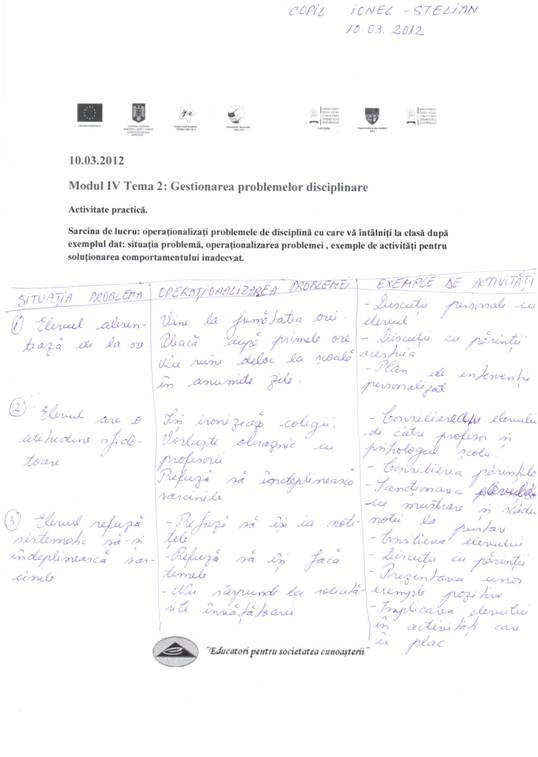 COPIL IONEL - STELIAN
10.03.2012
10.03.2012
Modul IV Tema 2: Gestionarea problemelor disciplinare
Activitate practică.
Sarcina de lucru: operaționalizați problemele de disciplină cu care vă întâlniți la clasă după
exemplul dat: situația problemă, operaționalizarea problemei , exemple de activități pentru
soluționarea comportamentului inadecvat.
SITUAȚIA PROBLEMĂ
① Elevul absen-
tează de la ore
② Elevul are o
atitudine sfidă-
toare
③ Elevul refuză
sistematic să-și
îndeplinească sar-
cinile
OPERAȚIONALIZAREA PROBLEMEI
Vine la jumătatea orei.
Pleacă după primele ore
Nu vine deloc la școală
în anumite zile.
Își ironizează colegii.
Vorbește obraznic cu
profesorii
Refuză să îndeplinească
sarcinile
- Refuză să își ia noti-
țele
- Refuză să își facă
temele
- Nu răspunde la solicită-
rile învățătoarei
EXEMPLE DE ACTIVITĂȚI
- Discuții personale cu
elevul
- Discuții cu părinții
acestuia
- Plan de intervenție
personalizat
- Consilierea elevului
de către profesor și
psihologul școlii
- Consilierea părinților
- Sancționarea elevului
cu mustrare și scăderea
notei la purtare
- Consilierea elevului
- Discuții cu părinții
- Prezentarea unor
exemple pozitive
- Implicarea elevului
în activități care
îi plac
"Educatori pentru societatea cunoașterii"